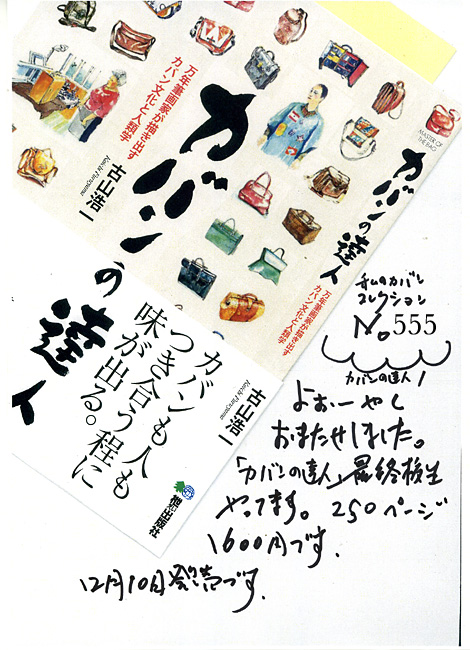 万年筆画家が描き出す
カバン文化と人類学
カバンの達人
古山浩一
Koichi Furuyama
カバンも人も
つき合う程に
味が出る。
枻出版社
MASTER OF
THE BAG
カバンの達人
万年筆画家が描き出す
カバン文化と人類学
古山浩一
Koichi Furuyama
私のカバン
コレクション
No.555
カバンの達人!
よおーやく
おまたせしました。
「カバンの達人」最終校生
やってます。250ページ
1600円です.
12月10日発売です.